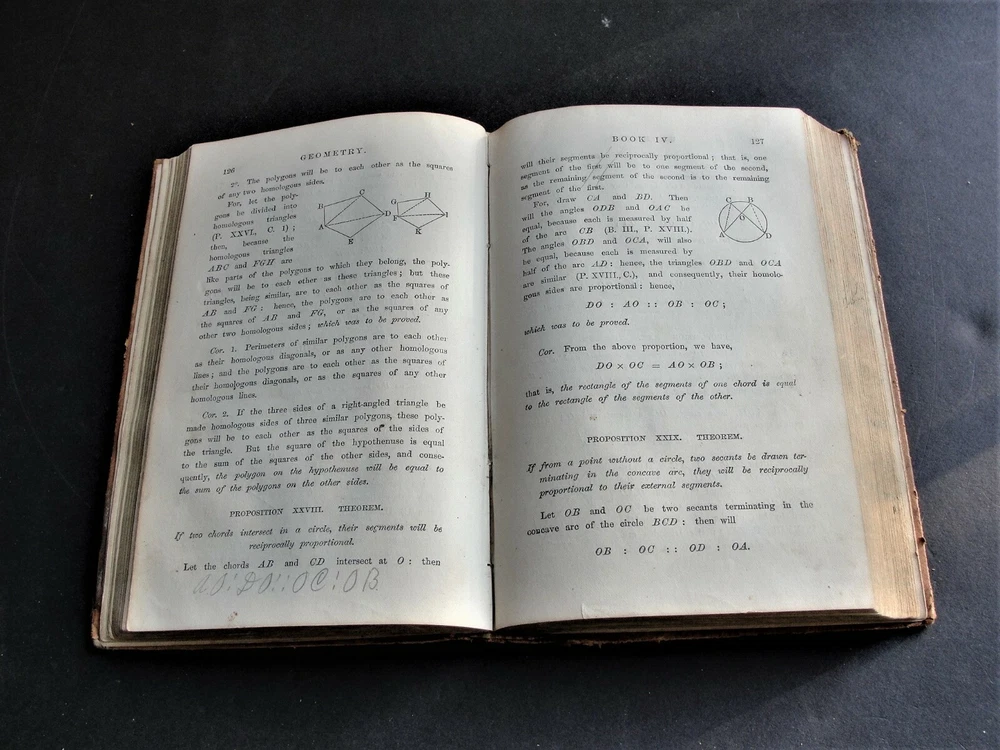 126
GEOMETRY.
2°. The polygons will be to each other as the squares
of any two homologous sides.
For, let the poly-
gons be divided into
homologous triangles
(P. XXVI., C. 1) ;
then, because the
homologous triangles
ABC and FGH are
like parts of the polygons to which they belong, the poly-
gons will be to each other as these triangles ; but these
triangles, being similar, are to each other as the squares of
AB and FG : hence, the polygons are to each other as
the squares of AB and FG, or as the squares of any
other two homologous sides ; which was to be proved.
A B C D E
F G H I K
Cor. 1. Perimeters of similar polygons are to each other
as their homologous diagonals, or as any other homologous
lines ; and the polygons are to each other as the squares of
their homologous diagonals, or as the squares of any other
homologous lines.
Cor. 2. If the three sides of a right-angled triangle be
made homologous sides of three similar polygons, these poly-
gons will be to each other as the squares of the sides of
the triangle. But the square of the hypothenuse is equal
to the sum of the squares of the other sides, and conse-
quently, the polygon on the hypothenuse will be equal to
the sum of the polygons on the other sides.
PROPOSITION XXVIII. THEOREM.
If two chords intersect in a circle, their segments will be
reciprocally proportional.
Let the chords AB and CD intersect at O : then
AO:DO::OC:OB
BOOK IV.
127
will their segments be reciprocally proportional ; that is, one
segment of the first will be to one segment of the second,
as the remaining segment of the second is to the remaining
segment of the first.
For, draw CA and BD. Then
will the angles ODB and OAC be
equal, because each is measured by half
of the arc CB (B. III., P. XVIII.).
The angles OBD and OCA, will also
be equal, because each is measured by
half of the arc AD : hence, the triangles OBD and OCA
are similar (P. XVIII., C.), and consequently, their homolo-
gous sides are proportional : hence,
C B
O
A D
DO : AO :: OB : OC ;
which was to be proved.
Cor. From the above proportion, we have,
DO × OC = AO × OB ;
that is, the rectangle of the segments of one chord is equal
to the rectangle of the segments of the other.
PROPOSITION XXIX. THEOREM.
If from a point without a circle, two secants be drawn ter-
minating in the concave arc, they will be reciprocally
proportional to their external segments.
Let OB and OC be two secants terminating in the
concave arc of the circle BCD : then will
OB : OC :: OD : OA.